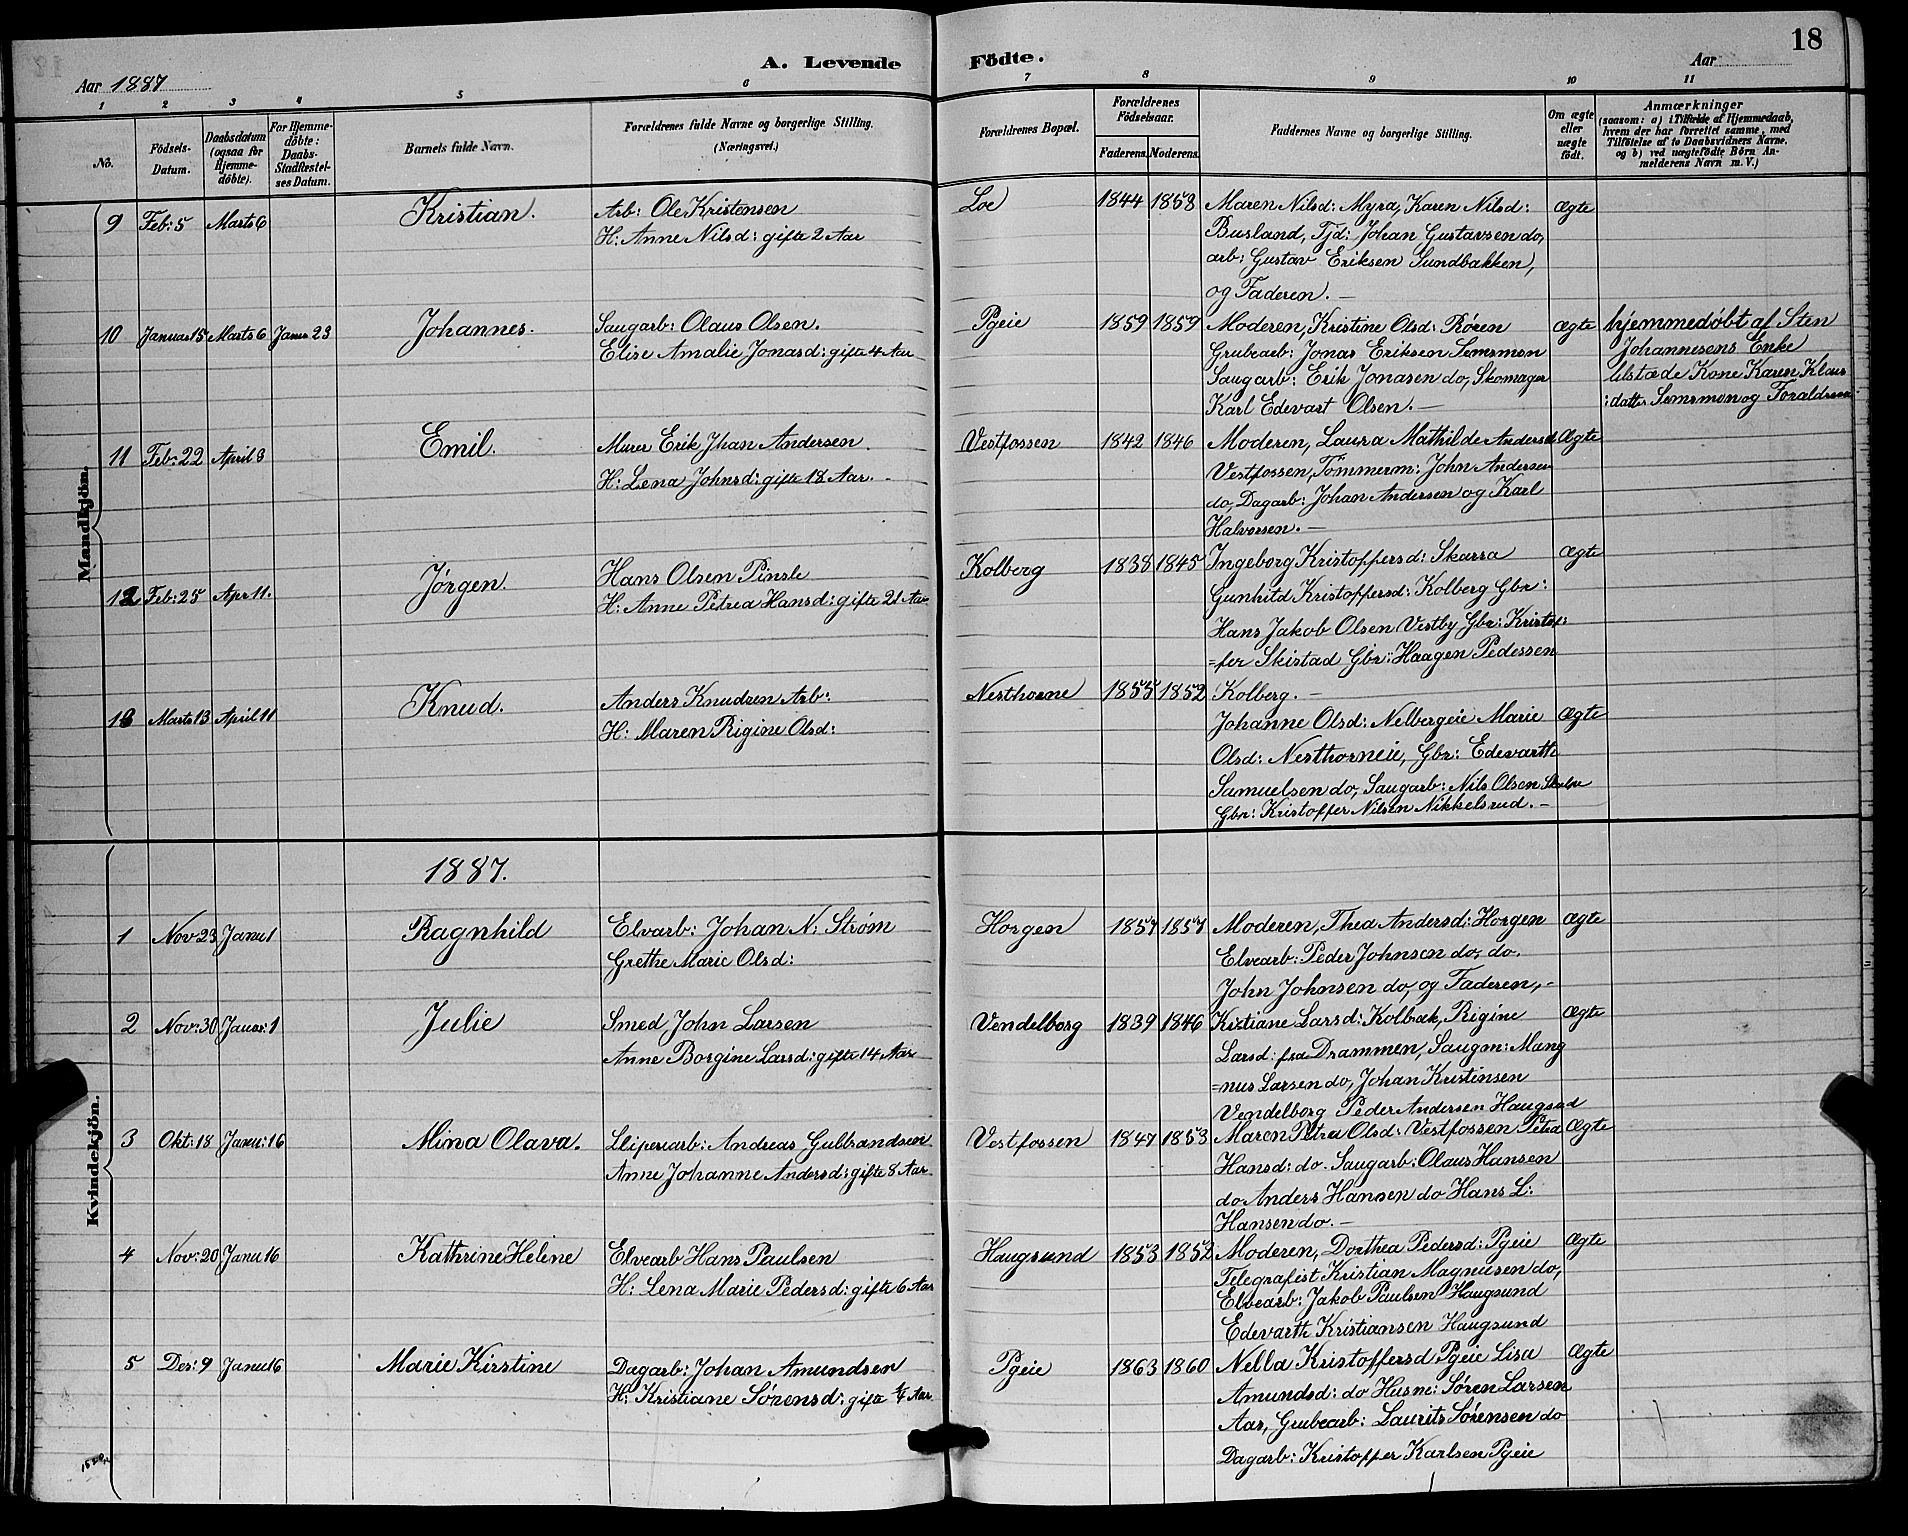 18
A. Levende Födte.
Aar 1887
Aar
1 2 3 4 5 6 7 8 9 10 11
No.
Födsels-Datum.
Daabsdatum (ogsaa för Hjemme-döbte).
For Hjemme-döbte: Daabs-Stadfæstel-ses Datum.
Barnets fulde Navn.
Forældrenes fulde Navne og borgerlige Stilling. (Næringsvei.)
Forældrenes Bopæl.
Forældrenes Födselsaar.
Faderens. Moderens.
Faddernes Navne og borgerlige Stilling.
Om ægte eller uægte födt.
Anmærkninger
(saasom: a) i Tilfælde af Hjemmedaab,
hvem der har forrettet samme, med
Tilföielse af to Daabsvidners Navne,
og b) ved uægtefödte Börn An-
melderens Navn m. V.)
Mandkjön.
9 Feb: 5 Marts 6 Kristian. Arb: Ole Kristensen Loe 1844 1858 Maren Nilsd: Myra, Karen Nilsd: Ægte
H: Anne Nilsd: gifte 2 Aar Busland, Tjd: Johan Gustavsen do,
arb: Gustav Eriksen Sundbakken,
og Faderen. —
10 Januar 15 Marts 6 Janu 23 Johannes. Saugarb: Olaus Olsen. Pgeie 1859 1859 Moderen, Kristine Olsd: Røren Ægte hjemmedøbt af Sten
Elise Amalie Jonasd: gifte 4 Aar Grubearb: Jonas Eriksen Semsmoen Johannesens Enke
Saugarb: Erik Jonasen do, Skomager tilstæde Kone Karen Klaus
Karl Edevart Olsen. — :datter Semsmoen og Foraldrene
11 Feb: 22 April 3 Emil. Murer Erik Jhan Andersen Vestfossen 1842 1846 Moderen, Laura Mathilde Andersd Ægte
H: Lena Johnsd: gifte 18 Aar. Vestfossen, Tömmerm: John Andersen
do, Dagarb: Johan Andersen og Karl
Halvorsen. —
12 Feb: 25 Apr 11. Jørgen. Hans Olsen Pinsle Kolberg 1838 1845 Ingeborg Kristoffersd: Skarra Ægte
H: Anne Petrea Hansd: gifte 21 Aar Gunhild Kristoffersd: Kolberg Gbr:
Hans Jakob Olsen Vestby Gbr: Kristof:
=fer Skistad Gbr: Haagen Pedessen
Kolberg. —
13 Marts 13 April 11 Knud. Anders Knudsen Arb: Nesthorne 1855 1852
H: Maren Rigine Olsd: Johanne Olsd: Nelbergeie Marie Ægte
Olsd: Nesthorneie, Gbr: Edevarth
Samuelsen do, Saugarb: Nils Olsen
Gbr: Kristoffer Nilsen Nikkelsrud. —
1887.
Kvindekjön.
1 Nov 23 Janu 1 Ragnhild Elvarb: Johan N: Strøm Horgen 1857 1857 Moderen, Thea Andersd: Horgen Ægte
Grethe Marie Olsd: Elvearb: Peder Johnsen do, do.
John Johnsen do, og Faderen, -
2 Nov: 30 Januar: 1 Julie Smed John Larsen Vendelborg 1839 1846 Kristiane Larsd: Kolbæk, Rigine Ægte
Anne Borgine Larsd: gifte 14 Aar Larsd: fra Drammen, Saugm: Mang
=nus Larsen do, Johan Kristinsen
Vendelborg Peder Andersen Haugsund
3 Okt: 18 Janu: 16 Mina Olava. Sliperiarb: Andreas Gulbrandsen Vestfossen 1847 1853 Maren Petra Olsd: Vestfossen Petra Ægte
Anne Johanne Andersd: gifte 8 Aar Hansd: do. Saugarb: Olaus Hansen
do Anders Hansen do Hans L:
Hansen do. —
4 Nov: 20 Janu 16 Kathrine Heline Elvearb Hans Paulsen Haugsund 1853 1852 Moderen, Dorthea Pedersd: Pgeie Ægte
H: Lena Marie Pedersd: gifte 6 Aar Telegrafist Kristian Magnusen do,
Elvearb: Jakob Paulsen Haugsund
Edevarth Kristiansen Haugsund
5 Des: 9 Janu 16 Marie Kirstine Dagarb: Johan Amundsen Pgeie 1863 1860 Nella Kristoffersd Pgeie Lisa Ægte
H: Kristiane Sørensd: gifte ¼ Aar Amundsd: do Husm: Søren Larsen
Aas, Grubearb: Laurits Sørensen do
Dagarb: Kristoffer Karlsen Pgeie